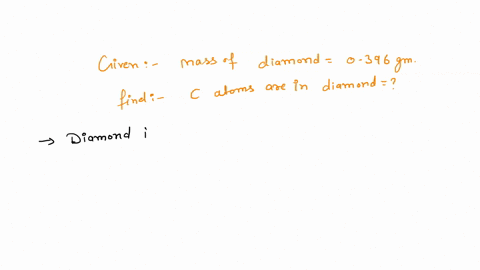 Given:- mass of diamond = 0.396 gm.
find:- C atoms are in diamond = ?
→ Diamond i